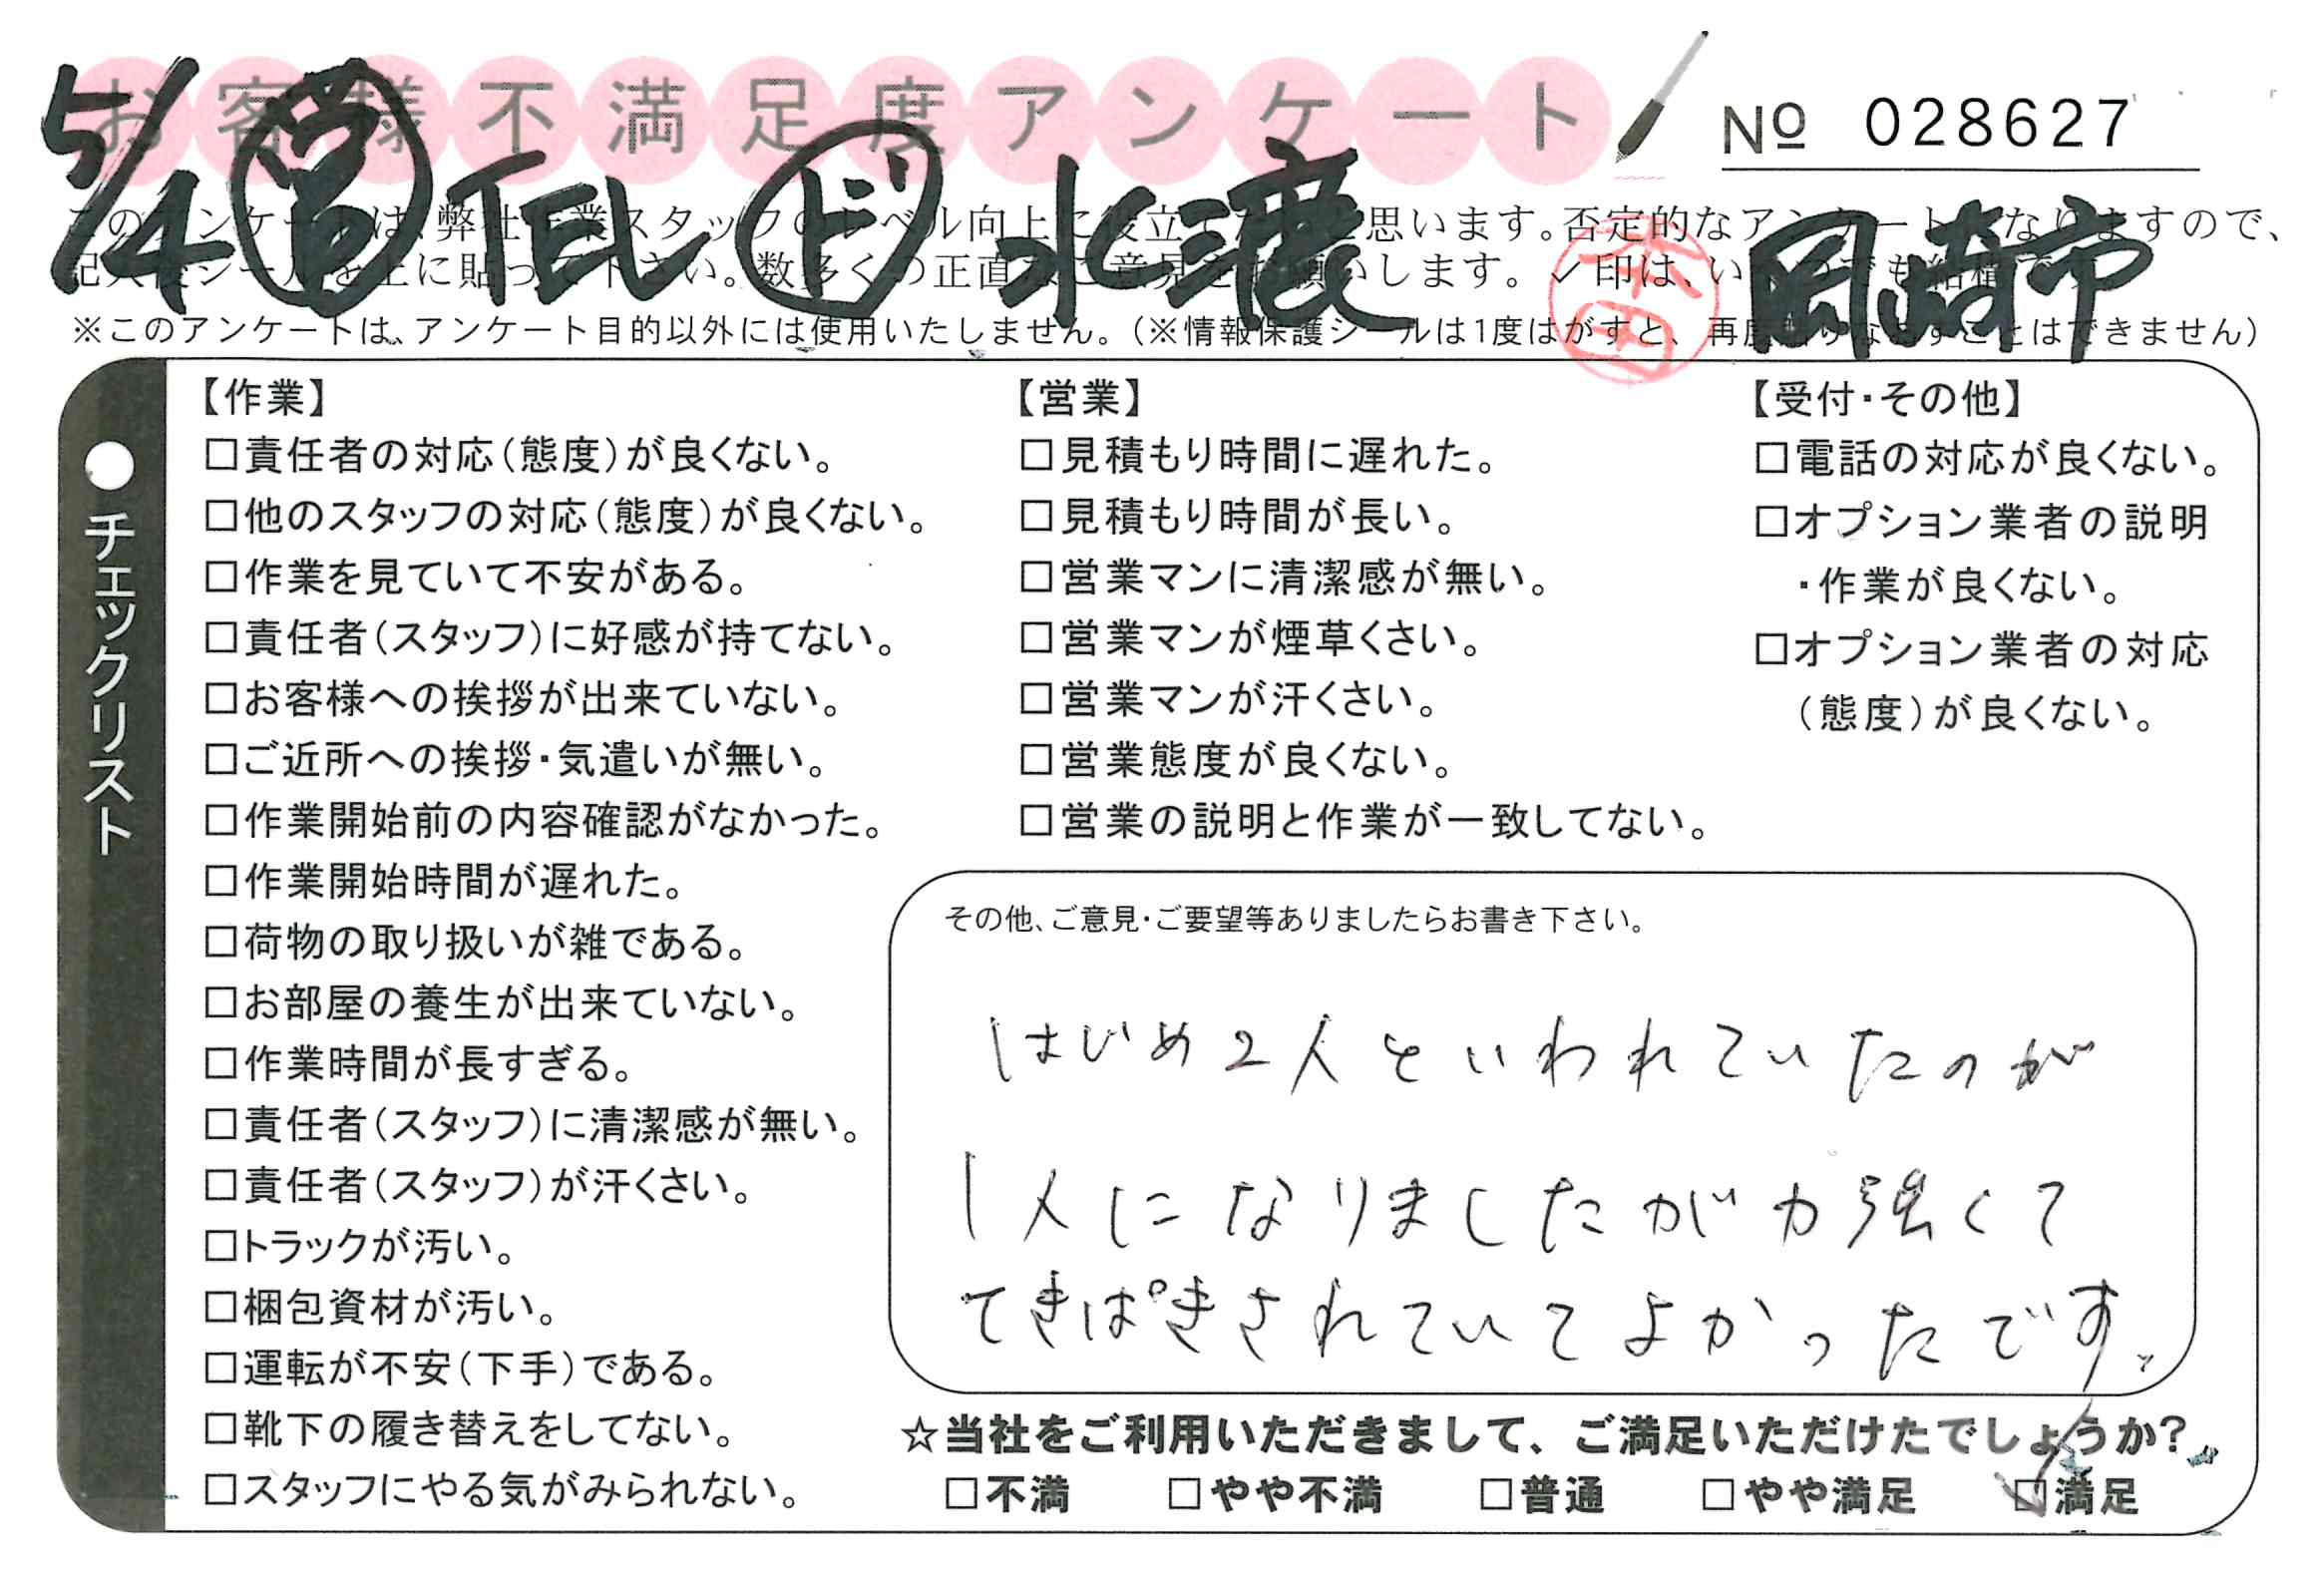 お客様不満足度アンケート
№ 028627
5/4 営 TEL ド 水漉 岡崎市
このアンケートは、弊社作業スタッフのレベル向上に役立 思います。否定的なアンケートになりますので、
記入後シールを上に貼って下さい。数多くの正直なご意見をお願いします。✓印は、いくつでも結構です。
※このアンケートは、アンケート目的以外には使用いたしません。(※情報保護シールは1度はがすと、再度貼りなおすことはできません)
本田
●チェックリスト
【作業】
□責任者の対応(態度)が良くない。
□他のスタッフの対応(態度)が良くない。
□作業を見ていて不安がある。
□責任者(スタッフ)に好感が持てない。
□お客様への挨拶が出来ていない。
□ご近所への挨拶・気遣いが無い。
□作業開始前の内容確認がなかった。
□作業開始時間が遅れた。
□荷物の取り扱いが雑である。
□お部屋の養生が出来ていない。
□作業時間が長すぎる。
□責任者(スタッフ)に清潔感が無い。
□責任者(スタッフ)が汗くさい。
□トラックが汚い。
□梱包資材が汚い。
□運転が不安(下手)である。
□靴下の履き替えをしてない。
□スタッフにやる気がみられない。
【営業】
□見積もり時間に遅れた。
□見積もり時間が長い。
□営業マンに清潔感が無い。
□営業マンが煙草くさい。
□営業マンが汗くさい。
□営業態度が良くない。
□営業の説明と作業が一致してない。
【受付・その他】
□電話の対応が良くない。
□オプション業者の説明
・作業が良くない。
□オプション業者の対応
(態度)が良くない。
その他、ご意見・ご要望等ありましたらお書き下さい。
はじめ2人といわれていたのが
1人になりましたが力強くて
てきぱきされていてよかったです。
☆当社をご利用いただきまして、ご満足いただけたでしょうか?
□不満 □やや不満 □普通 □やや満足 ☑満足